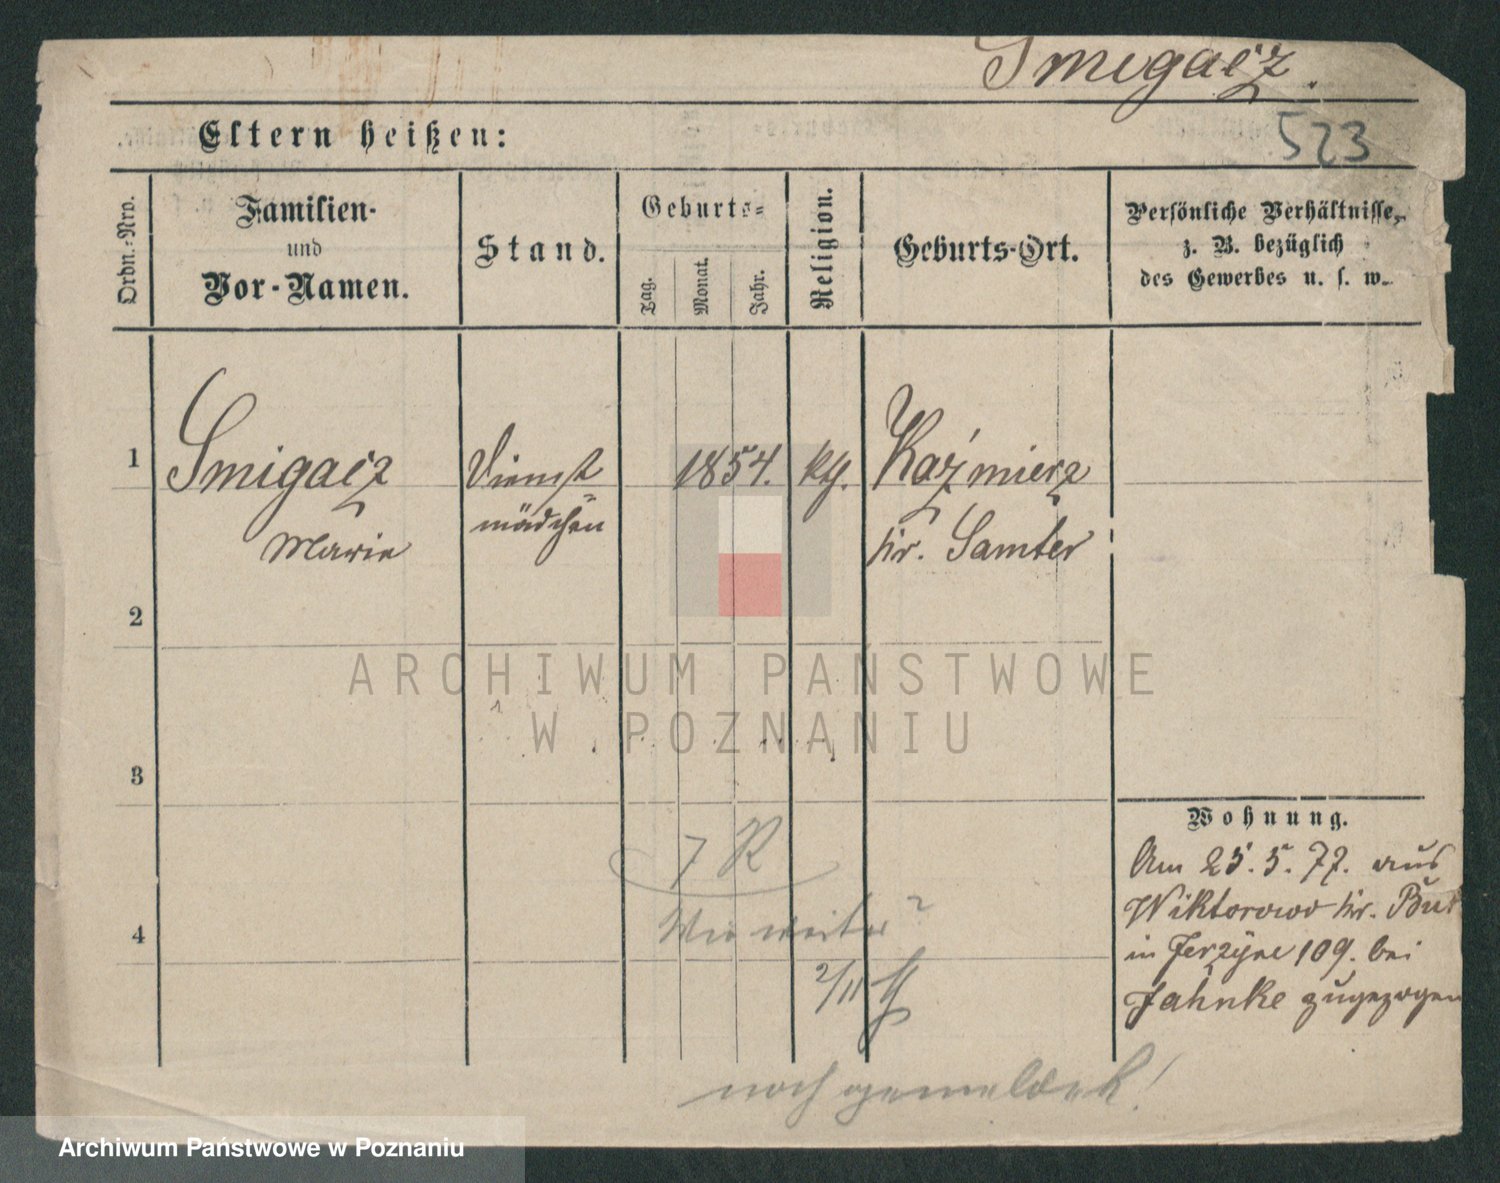 Smigacz.
Eltern heißen:
523
Ordn.-Nro.
Familien-
und
Vor-Namen.
Stand.
Geburts-
Tag.
Monat.
Jahr.
Religion.
Geburts-Ort.
Persönliche Verhältnisse,
z. B. bezüglich
des Gewerbes u. s. w.
1 Smigacz Dienst 1854. kth. Kaźmierz
Marie mädchen Kr. Samter
2
ARCHIWUM PAŃSTWOWE
W POZNANIU
3
Wohnung.
Am 25.5.77. aus
Wiktorowo Kr. Buk
in Jerzyce 109. bei
Jahnke zugezogen
7 R
Wie weiter?
4
2/11
noch gemeldet!
Archiwum Państwowe w Poznaniu